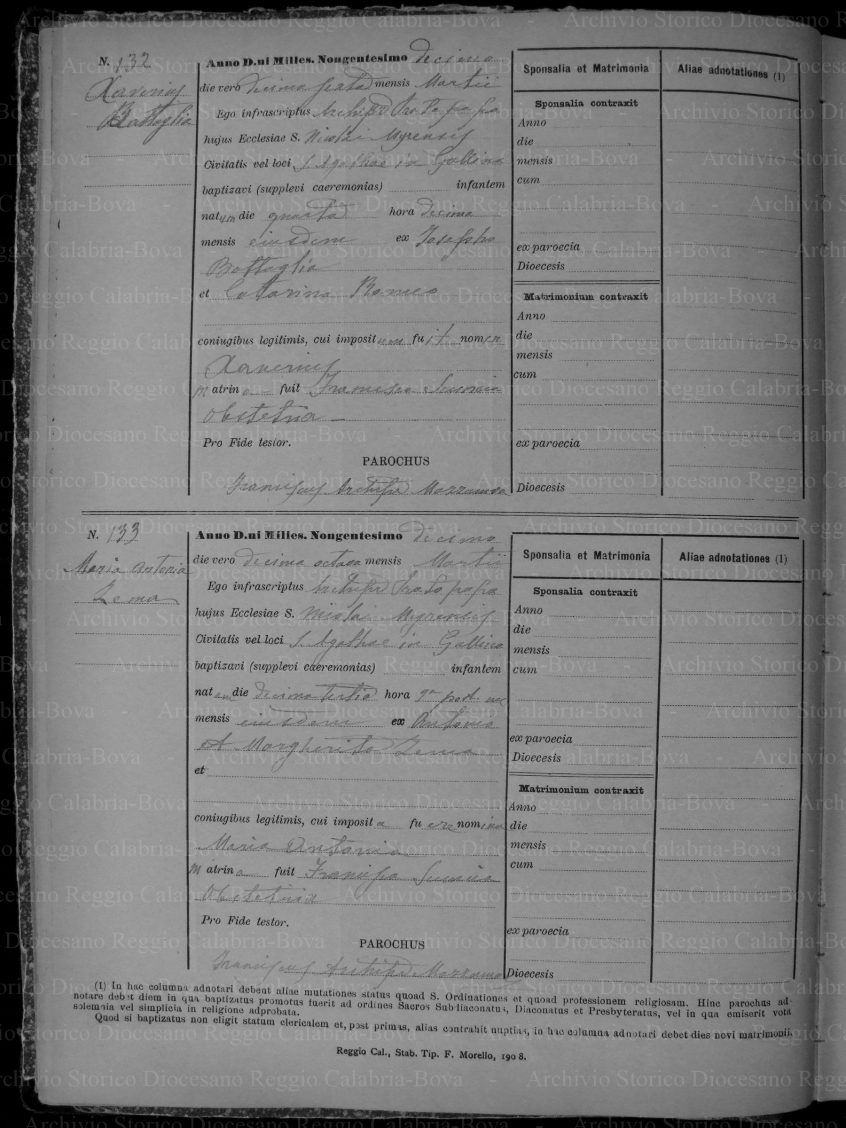 N. 132
Xaverius
Battaglia
Anno D.ni Milles. Nongentesimo decimo
die vero decima sexta mensis Martii
Ego infrascriptus Protopapa
hujus Ecclesiae S. Nicolai Myrensis
Civitatis vel loci S. Agathae in Gallina
baptizavi (supplevi caeremonias) infantem
natum die quarta hora decima
mensis eiusdem ex Josepho
Battaglia
et Catarina Romeo
coniugibus legitimis, cui impositum fuit nomen
Xaverius
Matrina fuit Francisca
Obstetrix
Pro Fide testor.
PAROCHUS
Franciscus
Sponsalia et Matrimonia
Aliae adnotationes (1)
Sponsalia contraxit
Anno
die
mensis
cum
ex paroecia
Dioecesis
Matrimonium contraxit
Anno
die
mensis
cum
ex paroecia
Dioecesis
N. 133
Maria Antonia
Zema
Anno D.ni Milles. Nongentesimo decimo
die vero decima octava mensis Martii
Ego infrascriptus Protopapa
hujus Ecclesiae S. Nicolai Myrensis
Civitatis vel loci S. Agathae in Gallina
baptizavi (supplevi caeremonias) infantem
natam die decima tertia hora 9a post
mensis eiusdem ex Antonio
et Margherita Zema
et
coniugibus legitimis, cui imposita fuere nomina
Maria Antonia
Matrina fuit Francisca
Obstetrix
Pro Fide testor.
PAROCHUS
Franciscus
Sponsalia et Matrimonia
Aliae adnotationes (1)
Sponsalia contraxit
Anno
die
mensis
cum
ex paroecia
Dioecesis
Matrimonium contraxit
Anno
die
mensis
cum
ex paroecia
Dioecesis
(1) In hac columna adnotari debent aliae mutationes status quoad S. Ordinationes et quoad professionem religiosam. Hinc parochus ad-
notare debet diem in qua baptizatus promotus fuerit ad ordines Sacros Subdiaconatus, Diaconatus et Presbyteratus, vel in qua emiserit vota
solemnia vel simplicia in religione adprobata.
Quod si baptizatus non eligit statum clericalem et, post primas, alias contrahit nuptias, in hac columna adnotari debet dies novi matrimonii.
Reggio Cal., Stab. Tip. F. Morello, 1908.
Archivio Storico Diocesano Reggio Calabria-Bova